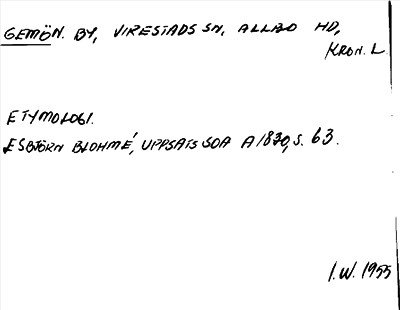 GEMÖN. BY, VIRESTADS SN, ALLBO HD,
KRON. L.
ETYMOLOGI.
ESBJÖRN BLOHMÉ, UPPSATS SOA A1830, S. 63.
I.W. 1955